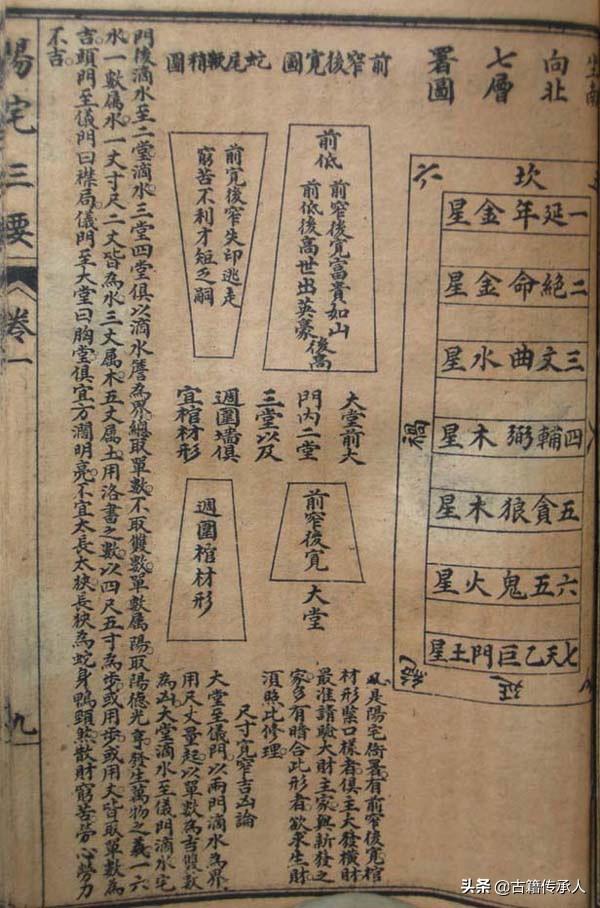 坐南
向北
七層
署圖
坎
六
一延年金星
二絕命金星
三文曲水星
四輔弼木星
五貪狼木星
六五鬼火星
七天乙巨門土星
禍
絕
延
前窄後寬圖
前低
前窄後寬富貴如山
前低後高世出英豪
後高
蛇尾皺稍圖
前寬後窄失印逃走
窮苦不利才短乏嗣
大堂前大
門內二堂
三堂以及
週圍墻俱
宜棺材形
前窄後寬
大堂
週圍棺材形
凡是陽宅衙署有前窄後寬棺
材形緊口樣者俱主大發橫財
最准請驗大財主家興新發之
家多有暗合此形者欲求生財
須照此修理
尺寸寬窄吉凶論
大堂至儀門以兩門滴水為界
用尺丈量起以單數為吉雙數
為凶大堂滴水至儀門滴水宅
門後滴水至二堂滴水三堂四堂俱以滴水為界總取單數不取雙數單數属陽取陽德光亨發生萬物之義一六
水一數属水一丈寸尺二丈皆為水三丈属木五丈属土用洛書之數以四尺五寸為步或用步或用丈皆取單數為
吉頭門至儀門曰襟局儀門至大堂曰胸堂俱宜方濶明亮不宜太長太狹長狹為蛇身鴨頸煞散財窮苦勞心勞力
不吉
陽宅三要
卷一
九
头条 @古籍传承人